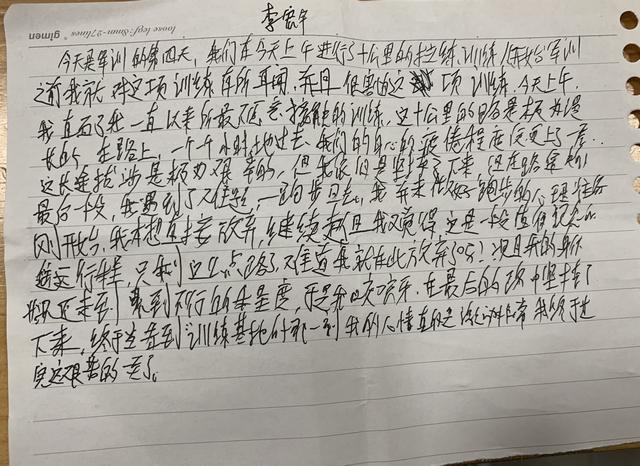 李宸宇
loose leaf: 8mm·27lines glmen
今天是军训的第四天,我们在今天上午进行了十公里的拉练训练,开始军训
之前我就对这项训练有所耳闻,并且很害怕这项训练.今天上午,
我直面了我一直以来所最不愿意接触的训练,这十公里的路是极为漫
长的,在路上,一个个小时地过去,我们的身心的疲惫程度便更上了一层..
这长途拉涉是极为艰苦的,但我依旧是坚持了下来,但在路程的
最后一段,我遇到了难题,一段跑步回去,我并未做好跑步的心理
刚开始,我本想直接放弃,继续 但我又觉得这是一段值得纪念的
行程,只剩这么点路了,难道我就在此放弃了吗!况且我的身体
还未到累到不行的程度,于是我咬咬牙,在最后的路中坚持了
下来,终于当走到训练基地的那一刻我的心情真的是 我终于走
完这艰苦的一段了。